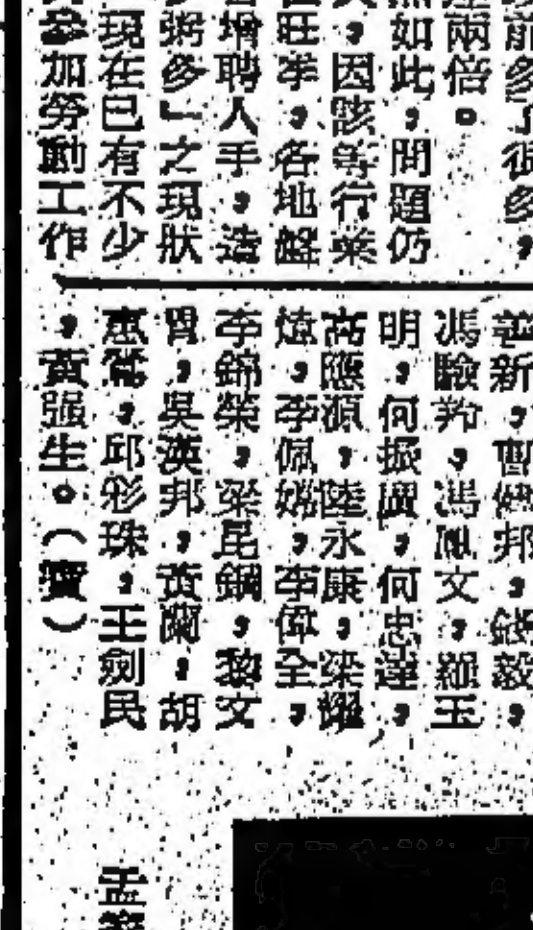 前多了很多，
兩倍。
如此，問題仍
，因該等行業
旺季，各地盤
增聘人手，造
粥多」之現狀
現在已有不少
參加勞動工作
新，曹
邦，錢毅，
馮驗
，馮鳳文，羅玉
明，何振廣，何忠達，
高應源，陸永康，梁耀
，李佩嫦，李偉全，
李錦榮，梁昆鋼，黎文
胃，吳漢邦，黃蘭，胡
，邱彩珠，王劍民
，黃强生。（寶）
孟